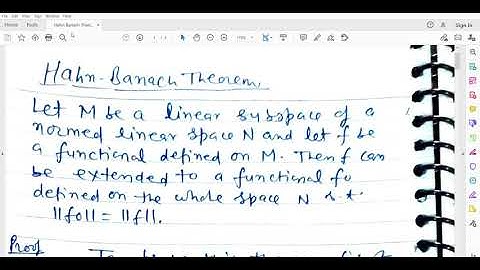 Home
Tools
Hahn Banach Theo...
Sign In
Hahn-Banach Theorem,
Let M be a linear subspace of a
normed linear space N and let f be
a functional defined on M. Then f can
be extended to a functional fo
defined on the whole space N s.t.
||fo|| = ||f||.
Proof